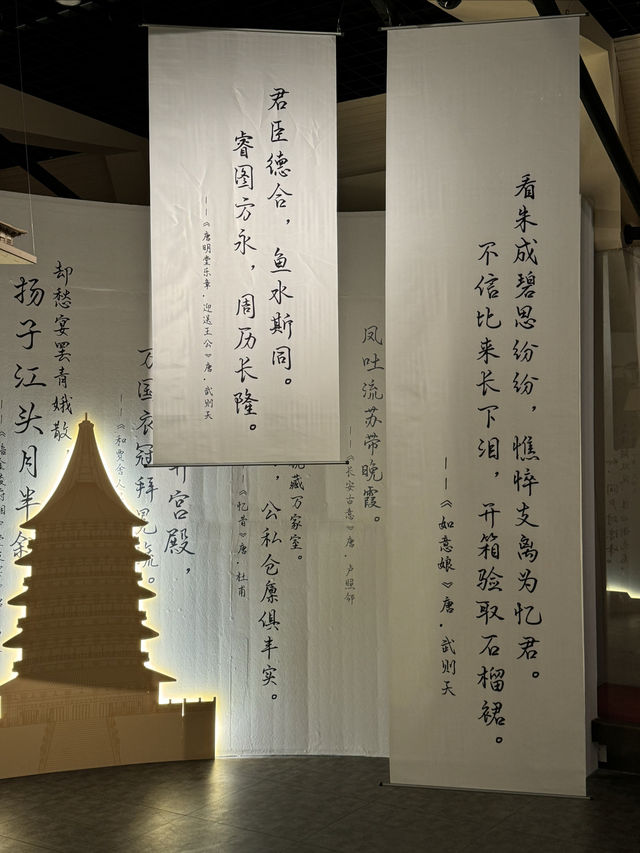 看朱成碧思纷纷，憔悴支离为忆君。
不信比来长下泪，开箱验取石榴裙。
——《如意娘》唐·武则天
君臣德合，鱼水斯同。
睿图方永，周历长隆。
——《唐明堂乐章·迎送王公》唐·武则天
凤吐流苏带晚霞。
——《长安古意》唐·卢照邻
藏万家室。
，公私仓廪俱丰实。
——《忆昔》唐·杜甫
宫殿，
万国衣冠拜冕旒。
——《和贾舍人
却愁宴罢青娥散，
扬子江头月半斜